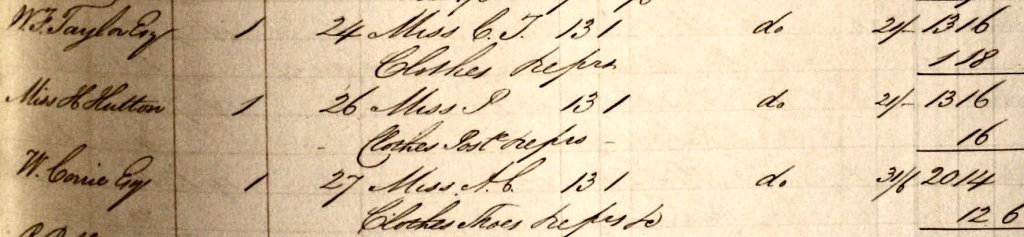 W. F. Taylor Esq 1 24 Miss C. T. 13 1 do 21/- 13 16
Clothes reprs 1 18
Miss H Hutton 1 26 Miss P 13 1 do 21/- 13 16
Clothes Postg reprs - 16
W. Corrie Esq 1 27 Miss A. C. 13 1 do 31/6 20 14
Clothes Shoes Reprs &c 12 6